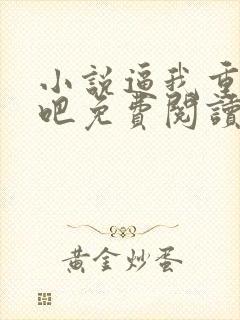 小說逼我重
吧免費閱讀
黃金炒蛋